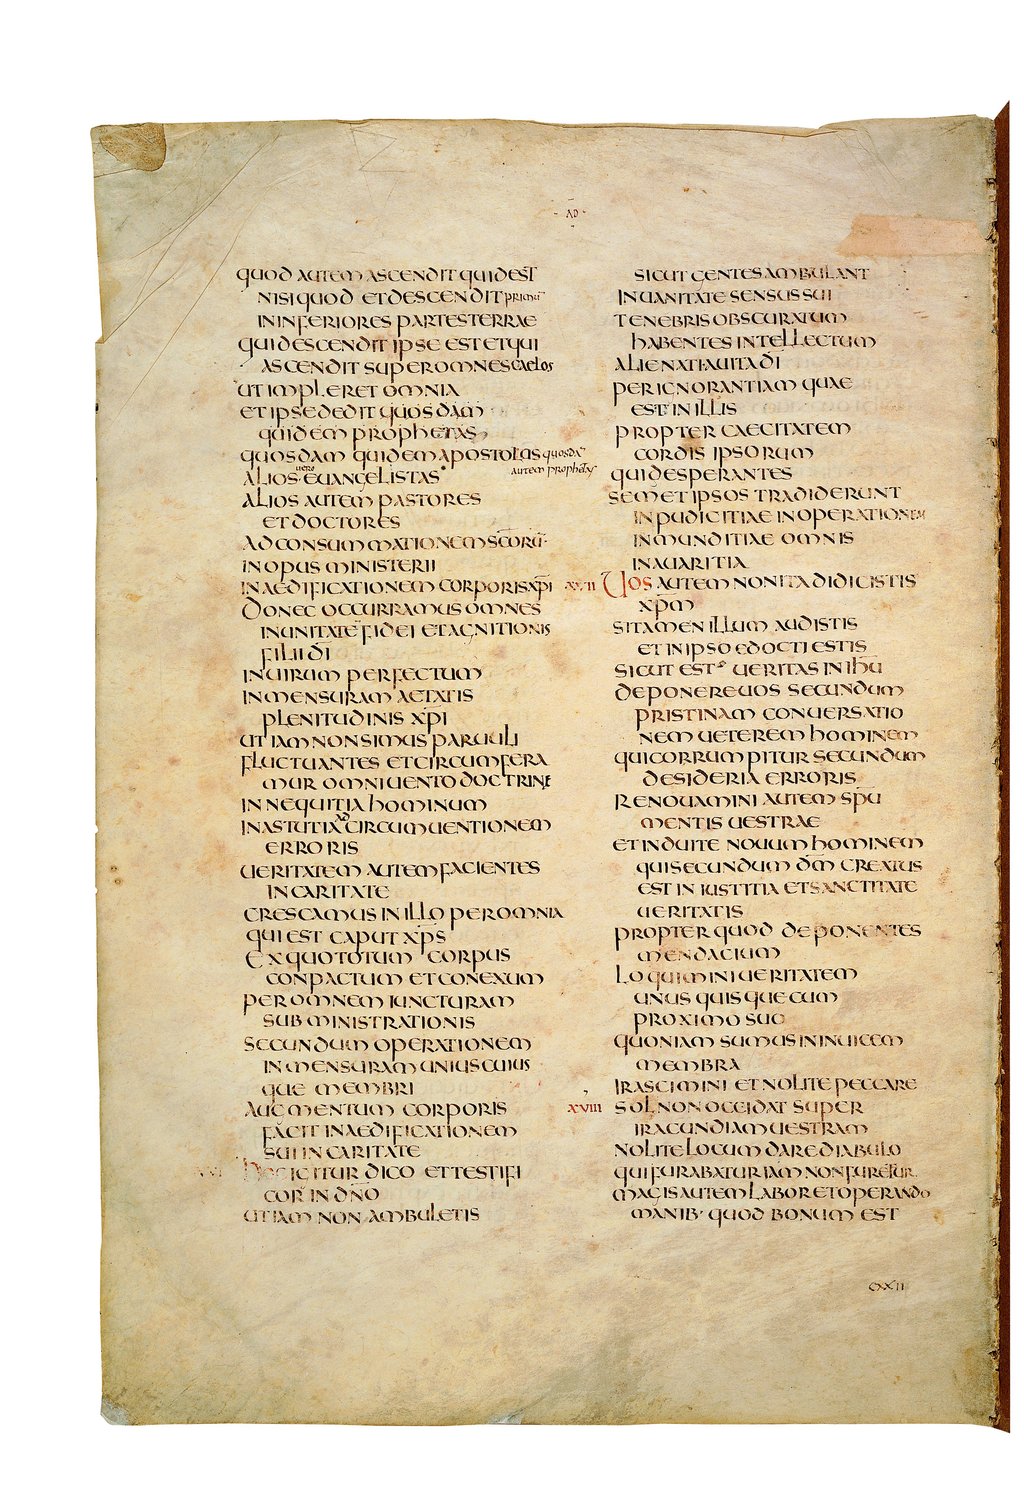 AD
QUOD AUTEM ASCENDIT QUID EST
NISI QUOD ET DESCENDIT PRIMŪ
IN INFERIORES PARTES TERRAE
QUI DESCENDIT IPSE EST ET QUI
ASCENDIT SUPER OMNES CAELOS
UT IMPLERET OMNIA
ET IPSE DEDIT QUOSDAM
QUIDEM PROPHETAS
QUOSDAM QUIDEM APOSTOLUS QUOSDĀ
AUTEM PROPHETAS
ALIOS UERO EUANGELISTAS
ALIOS AUTEM PASTORES
ET DOCTORES
AD CONSUMMATIONEM SC̄ORŪ
IN OPUS MINISTERII
IN AEDIFICATIONEM CORPORIS XP̄I
DONEC OCCURRAMUS OMNES
IN UNITATE FIDEI ET AGNITIONIS
FILII DĪ
IN UIRUM PERFECTUM
IN MENSURAM AETATIS
PLENITUDINIS XP̄I
UT IAM NON SIMUS PARUULI
FLUCTUANTES ET CIRCUMFERA
MUR OMNI UENTO DOCTRINĘ
IN NEQUITIA HOMINUM
IN ASTUTIA AD CIRCUMUENTIONEM
ERRORIS
UERITATEM AUTEM FACIENTES
IN CARITATE
CRESCAMUS IN ILLO PER OMNIA
QUI EST CAPUT XP̄S
EX QUO TOTUM CORPUS
CONPACTUM ET CONEXUM
PER OMNEM IUNCTURAM
SUBMINISTRATIONIS
SECUNDUM OPERATIONEM
IN MENSURAM UNIUSCUIUS
QUE MEMBRI
AUGMENTUM CORPORIS
FACIT IN AEDIFICATIONEM
SUI IN CARITATE
HOC IGITUR DICO ET TESTIFI
COR IN DN̄O
UT IAM NON AMBULETIS
SICUT GENTES AMBULANT
IN UANITATE SENSUS SUI
TENEBRIS OBSCURATUM
HABENTES INTELLECTUM
ALIENATI A UITA DĪ
PER IGNORANTIAM QUAE
EST IN ILLIS
PROPTER CAECITATEM
CORDIS IPSORUM
QUI DESPERANTES
SEMET IPSOS TRADIDERUNT
INPUDICITIAE IN OPERATIONEM
INMUNDITIAE OMNIS
IN AUARITIA
XVII UOS AUTEM NON ITA DIDICISTIS
XP̄M
SI TAMEN ILLUM AUDISTIS
ET IN IPSO EDOCTI ESTIS
SICUT EST UERITAS IN IH̄U
DEPONERE UOS SECUNDUM
PRISTINAM CONUERSATIO
NEM UETEREM HOMINEM
QUI CORRUMPITUR SECUNDUM
DESIDERIA ERRORIS
RENOUAMINI AUTEM SP̄U
MENTIS UESTRAE
ET INDUITE NOUUM HOMINEM
QUI SECUNDUM DM̄ CREATUS
EST IN IUSTITIA ET SANCTITATE
UERITATIS
PROPTER QUOD DEPONENTES
MENDACIUM
LOQUIMINI UERITATEM
UNUSQUISQUE CUM
PROXIMO SUO
QUONIAM SUMUS IN INUICEM
MEMBRA
IRASCIMINI ET NOLITE PECCARE
XVIII SOL NON OCCIDAT SUPER
IRACUNDIAM UESTRAM
NOLITE LOCUM DARE DIABULO
QUI FURABATUR IAM NON FURETUR
MAGIS AUTEM LABORET OPERANDO
MANIB' QUOD BONUM EST
CXXII